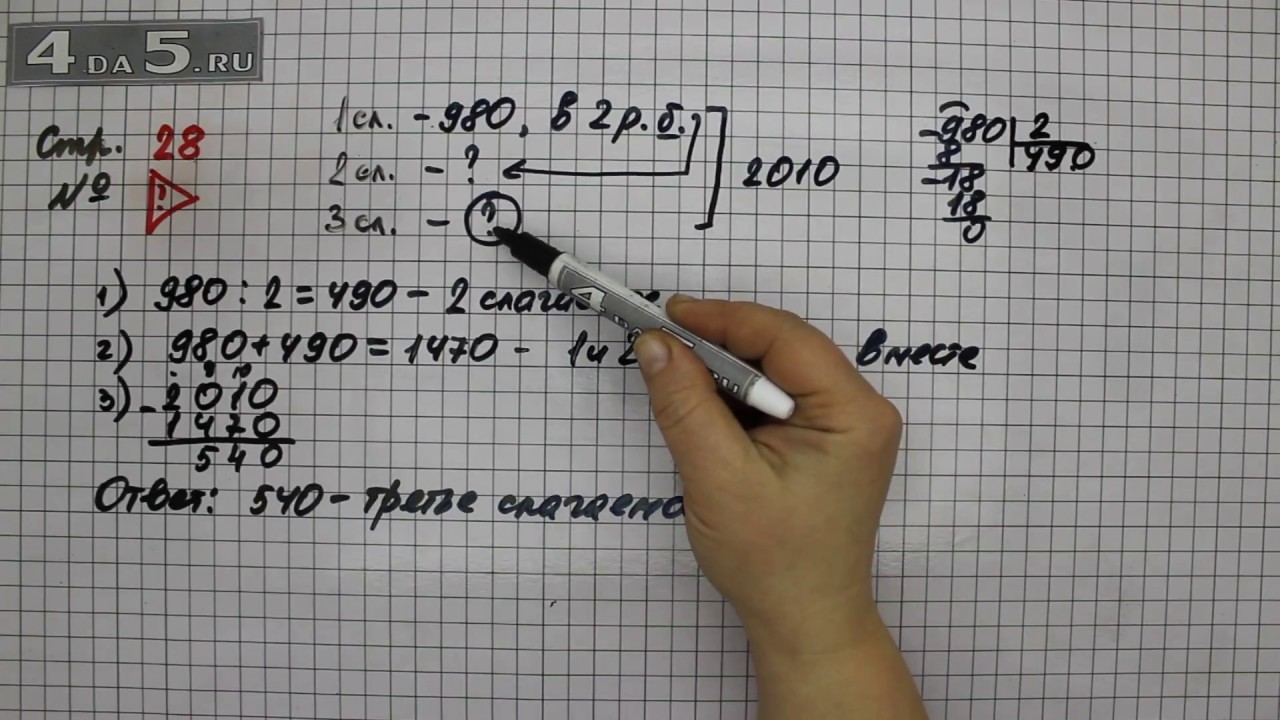 4DA5.RU
Стр. 28
№ ?
1 сл. - 980, в 2 р. б.
2 сл. - ?
3 сл. - ?
2010
- 980 | 2
8 490
- 18
18
0
1) 980 : 2 = 490 - 2
2) 980 + 490 = 1470 - 1 и вместе
3) - 2010
1470
540
Ответ: 540 - третье